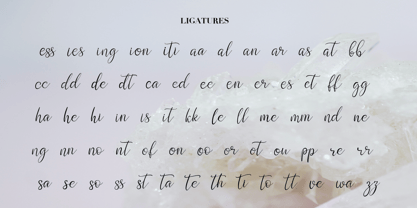 LIGATURES
ess ies ing ion iti aa al an ar as at bb
cc dd de dt ca ed ee en er es et ff gg
ha he hi in is it kk le ll me mm nd ne
ng nn no nt of on oo or ot ou pp re rr
sa se so ss st ta te th ti to tt ve wa zz